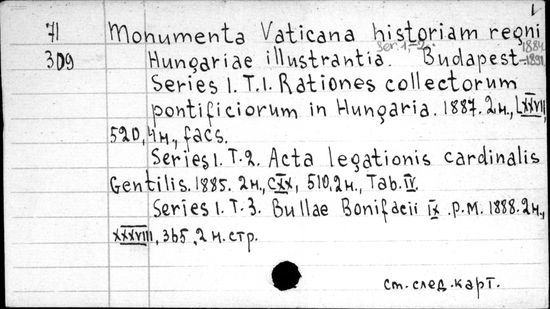 1
71 Monumenta Vaticana historiam regni
309 Hungariae illustrantia. Budapest
Ser. 1-2. 1884-1891
Series I. T.1. Rationes collectorum
pontificiorum in Hungaria. 1887. 2 н., LXXVII,
520, 4 н., facs.
Series I. T.2. Acta legationis cardinalis
Gentilis. 1885. 2 н., CXX, 510, 2 н., Tab. IV.
Series I. T.3. Bullae Bonifacii IX. P.M. 1888. 2 н.,
XXXVIII, 365, 2 н. стр.
см. след. карт.